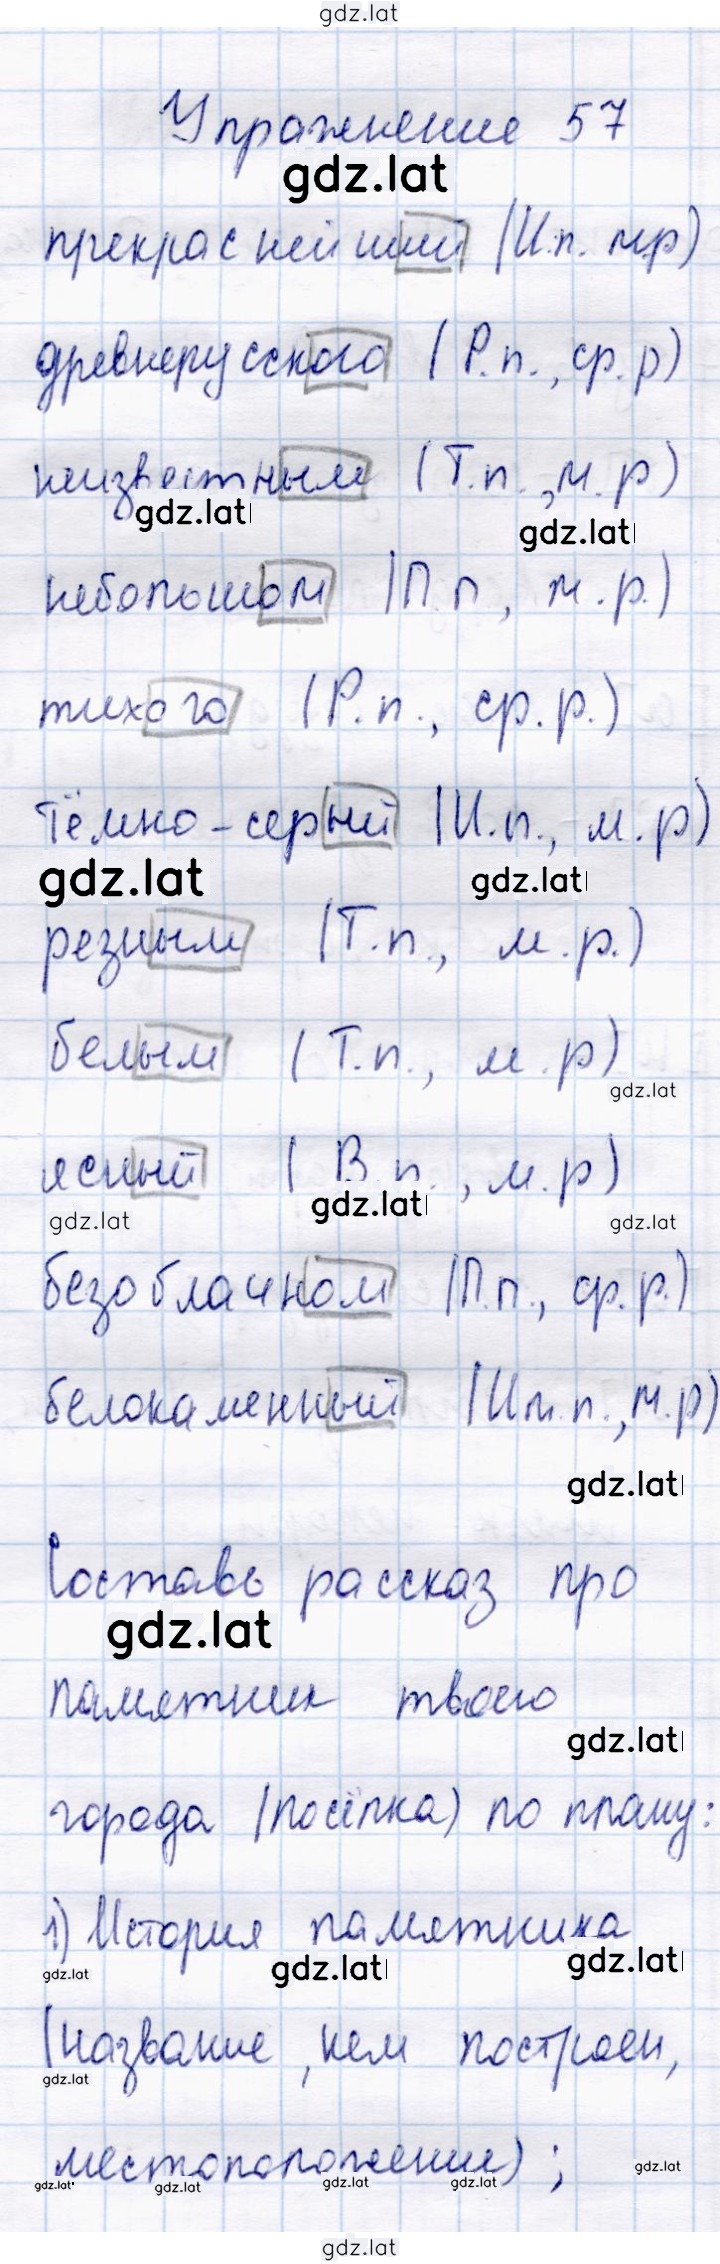 gdz.lat
Упражнение 57
gdz.lat
прекраснейший (И.п. м.р)
древнерусского (Р.п., ср.р)
неизвестным (Т.п., м.р)
gdz.lat
gdz.lat
небольшом (П.п, м.р.)
тихого (Р.п., ср.р.)
тёмно-серый (И.п., м.р)
gdz.lat gdz.lat
резным (Т.п., м.р.)
белым (Т.п., м.р)
gdz.lat
ясный (В.п., м.р)
gdz.lat
gdz.lat gdz.lat
безоблачном (П.п., ср.р.)
белокаменный (Им.п., м.р)
gdz.lat
Составь рассказ про
gdz.lat
памятник твоего
gdz.lat
города (посёлка) по плану:
1) История памятника
gdz.lat gdz.lat gdz.lat
(название, кем построен,
gdz.lat
местоположение);
gdz.lat gdz.lat gdz.lat gdz.lat gdz.lat
gdz.lat